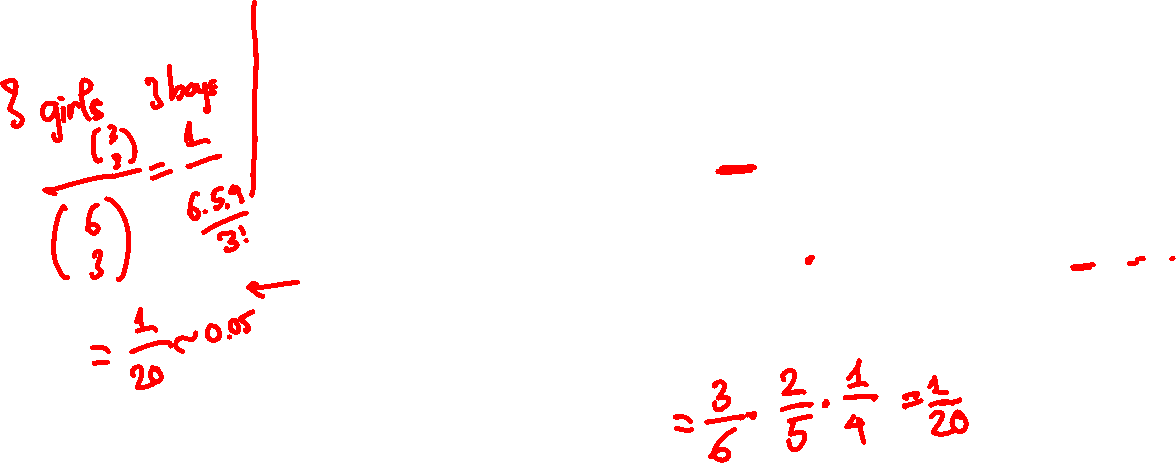 3 girls 3 boys
(3 3) / (6 3) = 1 / (6.5.4 / 3!)
= 1/20 ~ 0.05
= 3/6 . 2/5 . 1/4 = 1/20